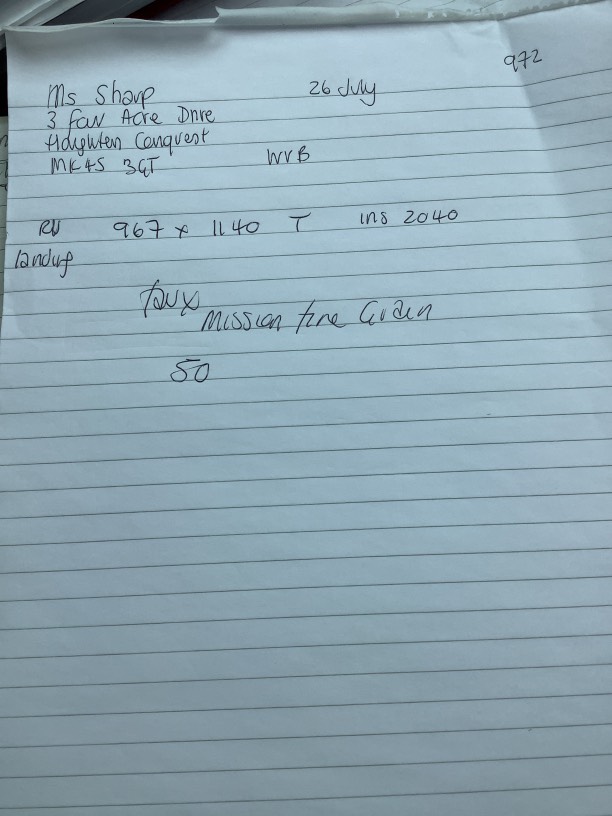 972
Ms Sharp 26 July
3 Fair Acre Drive
Houghton Conquest
MK45 3GT WVB
967 x 1140 T ins 2040
landup
faux
Mission fine
50